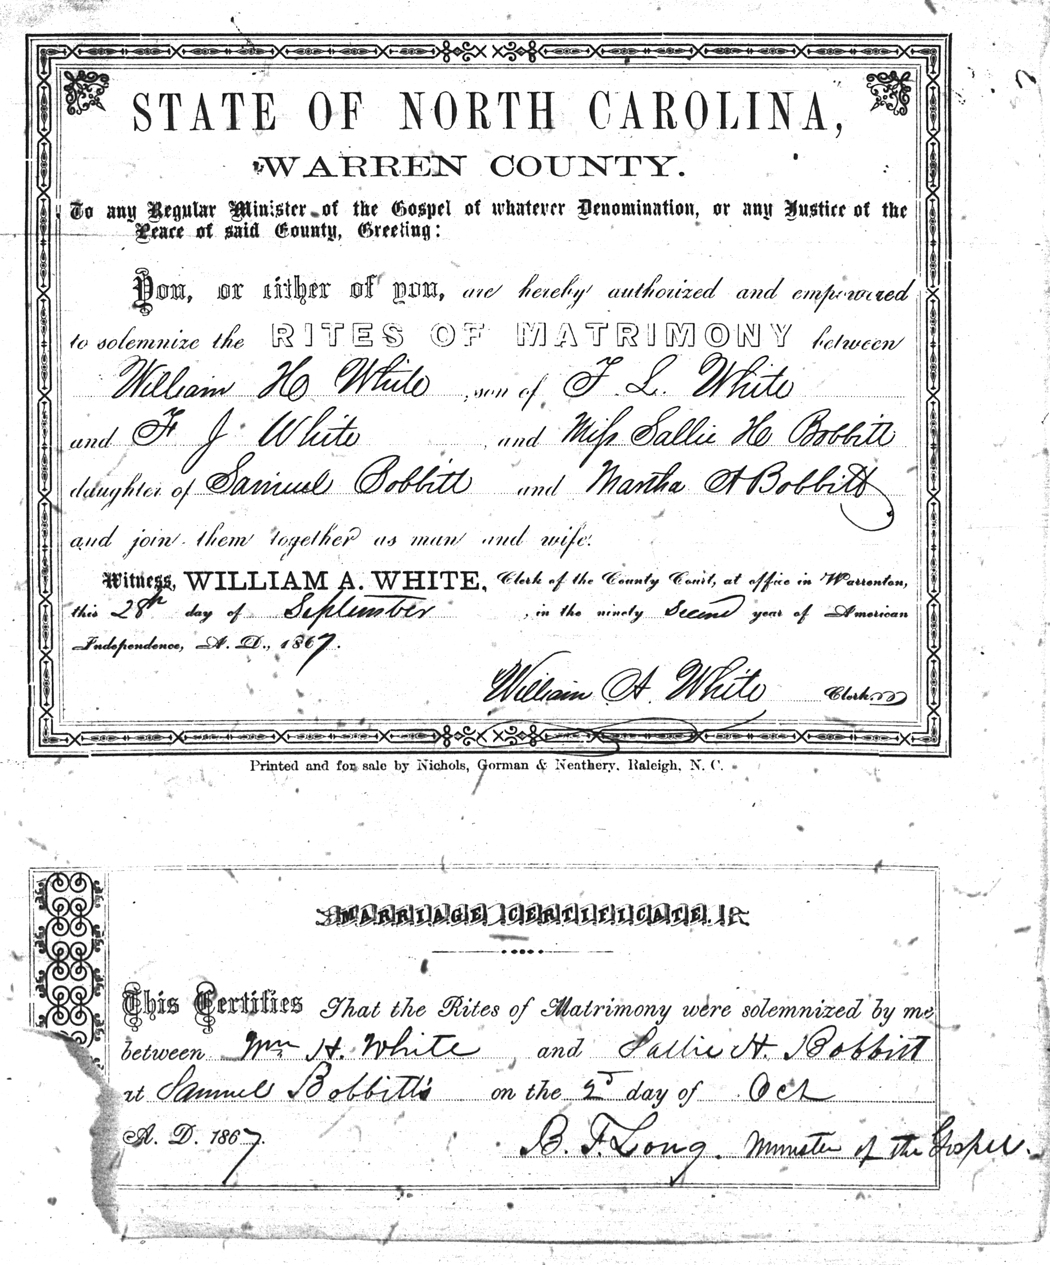 STATE OF NORTH CAROLINA,
WARREN COUNTY.
To any Regular Minister of the Gospel of whatever Denomination, or any Justice of the
Peace of said County, Greeting:
You, or either of you, are hereby authorized and empowered
to solemnize the RITES OF MATRIMONY between
William H White, son of F. L. White
and F J White, and Miss Sallie H Bobbitt
daughter of Samuel Bobbitt and Martha A Bobbitt
and join them together as man and wife.
Witness, WILLIAM A. WHITE, Clerk of the County Court, at office in Warrenton,
this 28th day of September, in the ninety Second year of American
Independence, A. D., 1867.
William A. White Clerk
Printed and for sale by Nichols, Gorman & Neathery, Raleigh, N. C.
MARRIAGE CERTIFICATE.
This Certifies That the Rites of Matrimony were solemnized by me,
between Wm H. White and Sallie H. Bobbitt
at Samuel Bobbitt's on the 2d day of Oct
A. D. 1867.
B. F. Long. Minister of the Gospel.